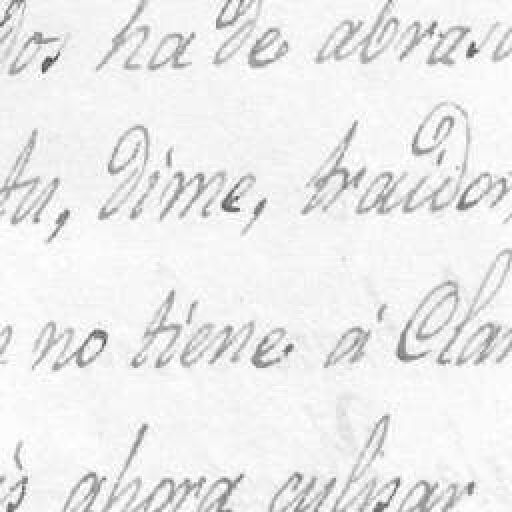 dos, ha de abras
tu, dime, traidor,
no tiene á Clar
ahora culpar